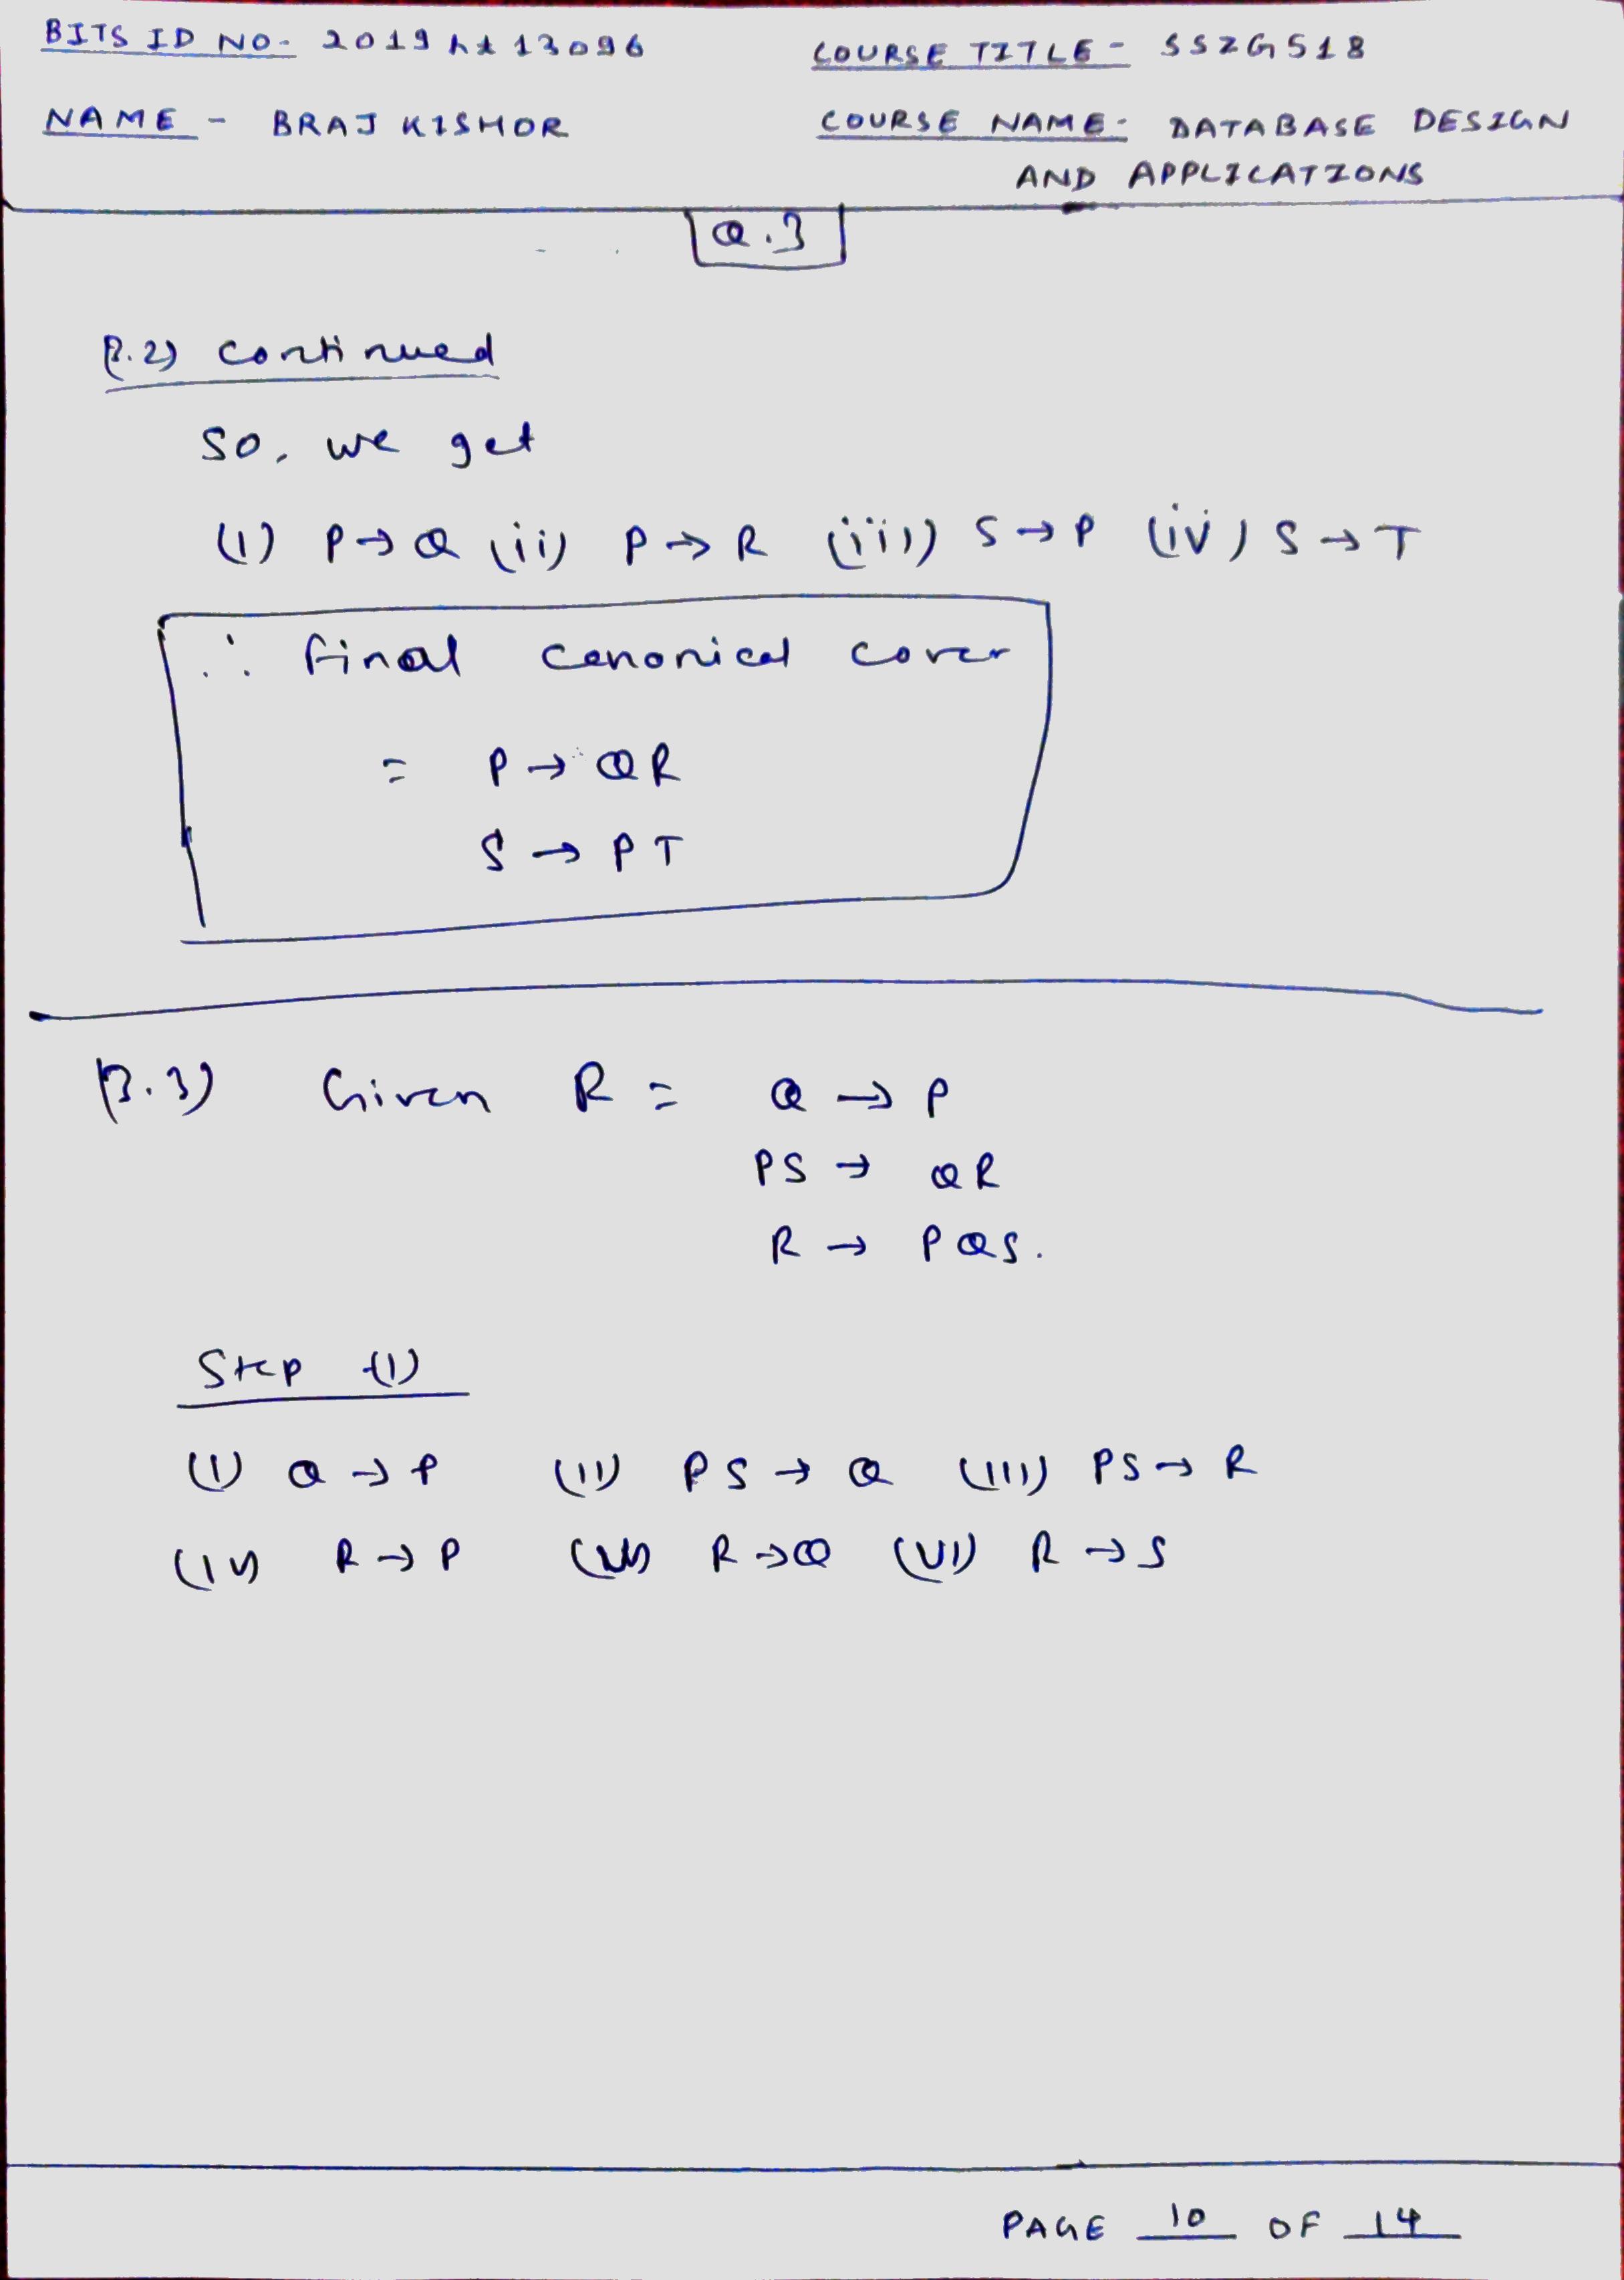 BITS ID NO- 2019ht13096 COURSE TITLE- SSZG518
NAME - BRAJ KISHOR COURSE NAME- DATABASE DESIGN
AND APPLICATIONS
Q.3
3.2) continued
So, we get
(i) P→Q (ii) P→R (iii) S→P (iv) S→T
∴ final canonical cover
= P→QR
S→PT
3.3) Given R = Q→P
PS→QR
R→PQS.
Step (1)
(i) Q→P (ii) PS→Q (iii) PS→R
(iv) R→P (v) R→Q (vi) R→S
PAGE 10 OF 14